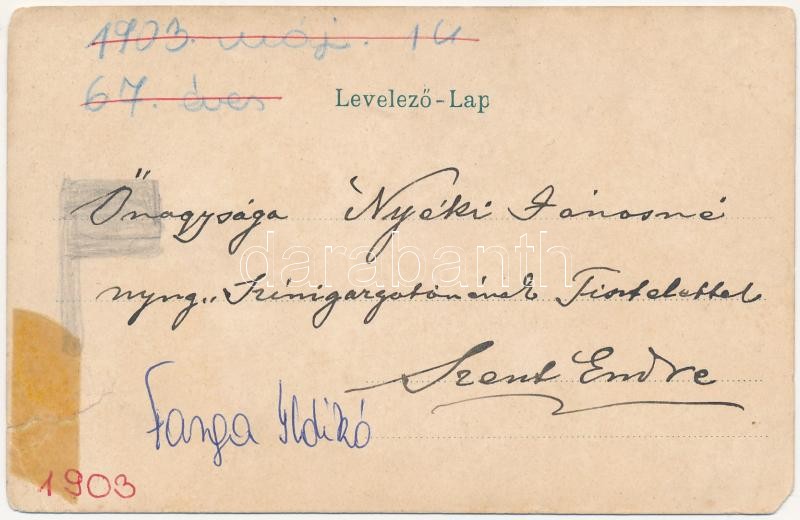 1903. máj. 14
67. éves
Levelező-Lap
Őnagysága Nyéki Jánosné
nyug. Színigazgatónének Tisztelettel
Szent Endre
Farga Ildikó
1903
darabanth